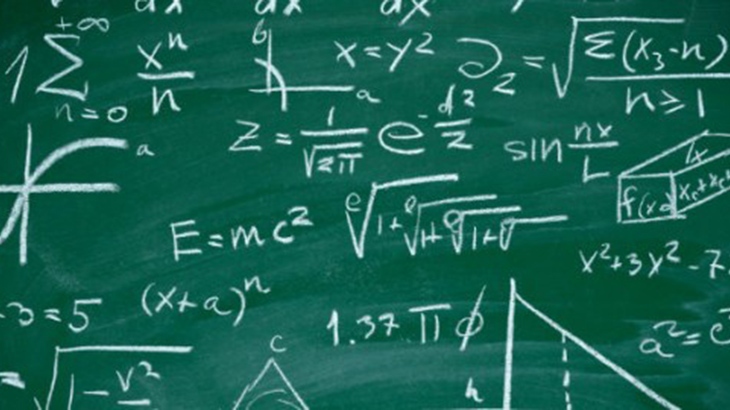 dx dx dx
+∞
1 Σ xⁿ/n
n=0
b
a
x=y²
∂₂ = √Σ(x₃-n)
n≥1
a
Z = 1/√2π e^-d²/2
sin nx/L
f(x
E=mc²
e√1+e√1+e√1+√
x²+3x²-7.
-3=5
(x+a)ⁿ
1.37 π φ
a²=c
= √1-v²
c
h